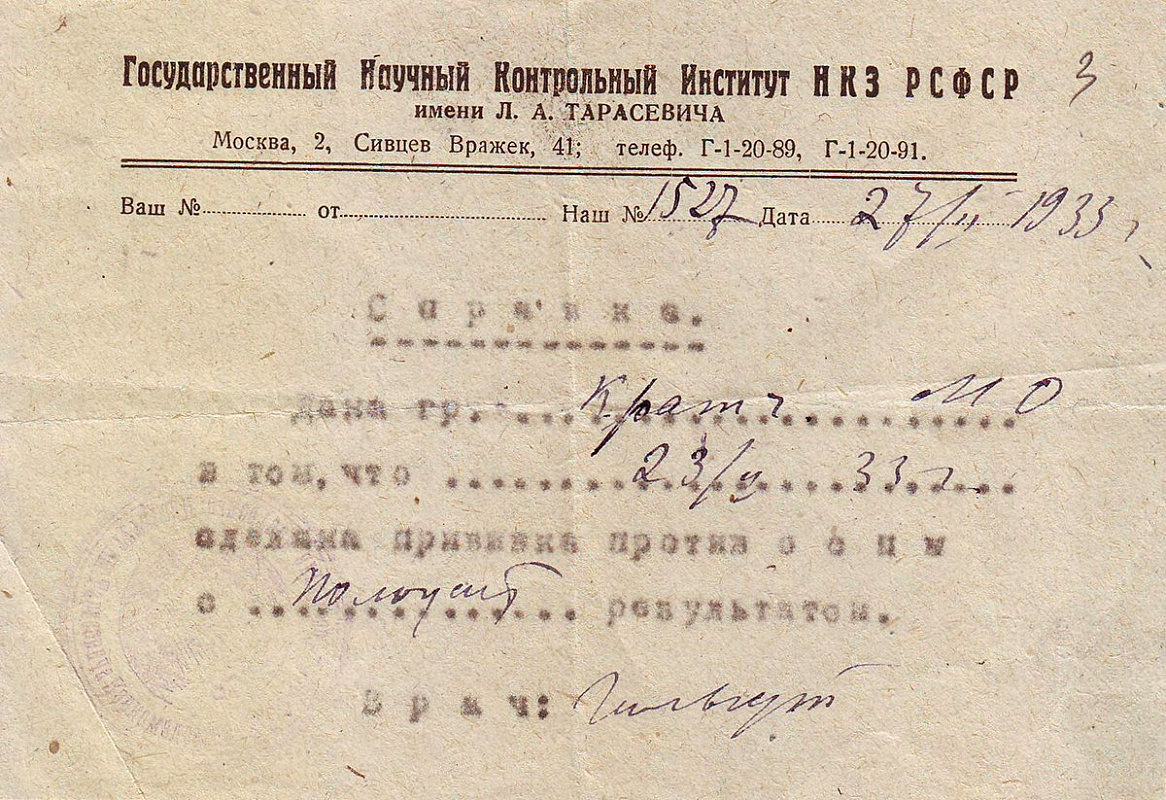 3
Государственный Научный Контрольный Институт НКЗ РСФСР
имени Л. А. ТАРАСЕВИЧА
Москва, 2, Сивцев Вражек, 41; телеф. Г-1-20-89, Г-1-20-91.
Ваш №............ от........................ Наш № 1527 Дата 27/II 1933 г.
Справка.
Дана гр. ... М О
в том, что 23/II 33 г.
сделана прививка против оспы
с ............ результатом.
Врач: